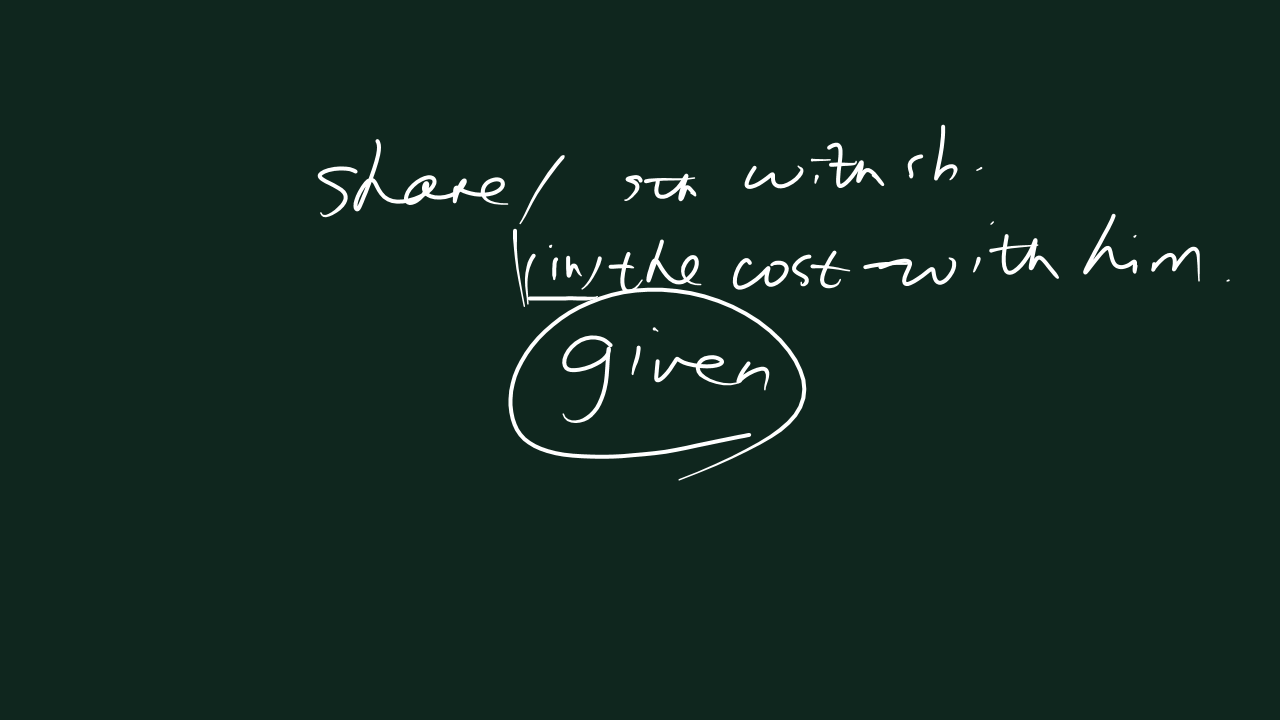 share / sth with sb.
(in) the cost with him.
given